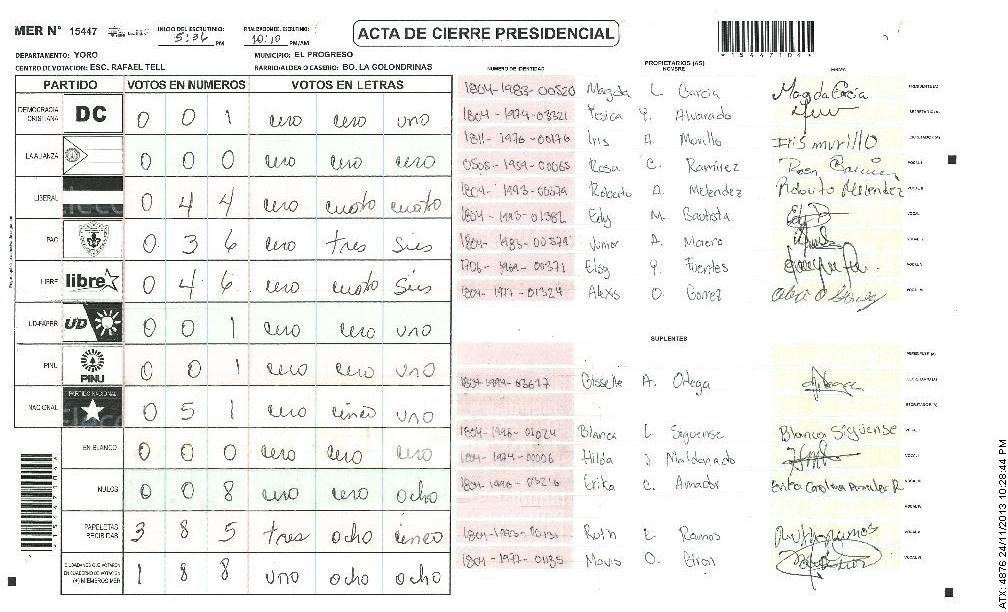 MER N° 15447 INICIO DEL ESCRUTINIO: 5:36 PM FINALIZACION DEL ESCRUTINIO: 10:10 PM/AM
ACTA DE CIERRE PRESIDENCIAL
DEPARTAMENTO: YORO MUNICIPIO: EL PROGRESO
CENTRO DE VOTACION: ESC. RAFAEL TELL BARRIO/ALDEA O CASERIO: BO. LA GOLONDRINAS
PARTIDO VOTOS EN NUMEROS VOTOS EN LETRAS
DEMOCRACIA CRISTIANA DC 0 0 1 cero cero uno
LA ALIANZA 0 0 0 cero cero cero
LIBERAL 0 4 4 cero cuatro cuatro
PAC 0 3 6 cero tres Siés
LIBRE libre 0 4 6 cero cuatro Siés
UD-FAPER UD 0 0 1 cero cero uno
PINU PINU 0 0 1 cero cero uno
NACIONAL PARTIDO NACIONAL 0 5 1 cero cinco uno
EN BLANCO 0 0 0 cero cero cero
NULOS 0 0 8 cero cero ocho
PAPELETAS RECIBIDAS 3 8 5 tres ocho cinco
CIUDADANOS QUE VOTARON EN CUADERNO DE VOTACION (+) MIEMBROS MER 1 8 8 uno ocho ocho
PROPIETARIOS (AS)
NUMERO DE IDENTIDAD NOMBRE FIRMA
1804-1983-00520 Magda L Garcia Magda Garcia
1804-1974-03321 Yesica Y. Alvarado
1811-1976-00176 Iris Morillo Iris murillo
0505-1959-00065 Rosa C. Ramirez
1804-1993-00379 Roberto A. Melendez Roberto Melendez
Edy M. Bautista
Junior A. Moreno
Elsy Y. Fuentes
1804-1977-01324 Alexis O. Gomez
SUPLENTES
Gisselle A. Ortega
Blanca L Siguense Blanca Sigüense
1804-1974-00006 Hilda J Maldonado
Erika C. Amador Erika Carolina Amador R
Ruth E. Ramos Ruth Ramos
1804-1977-01135 Mavis O. Giron
ATX: 4876 24/11/2013 10:28:44 PM